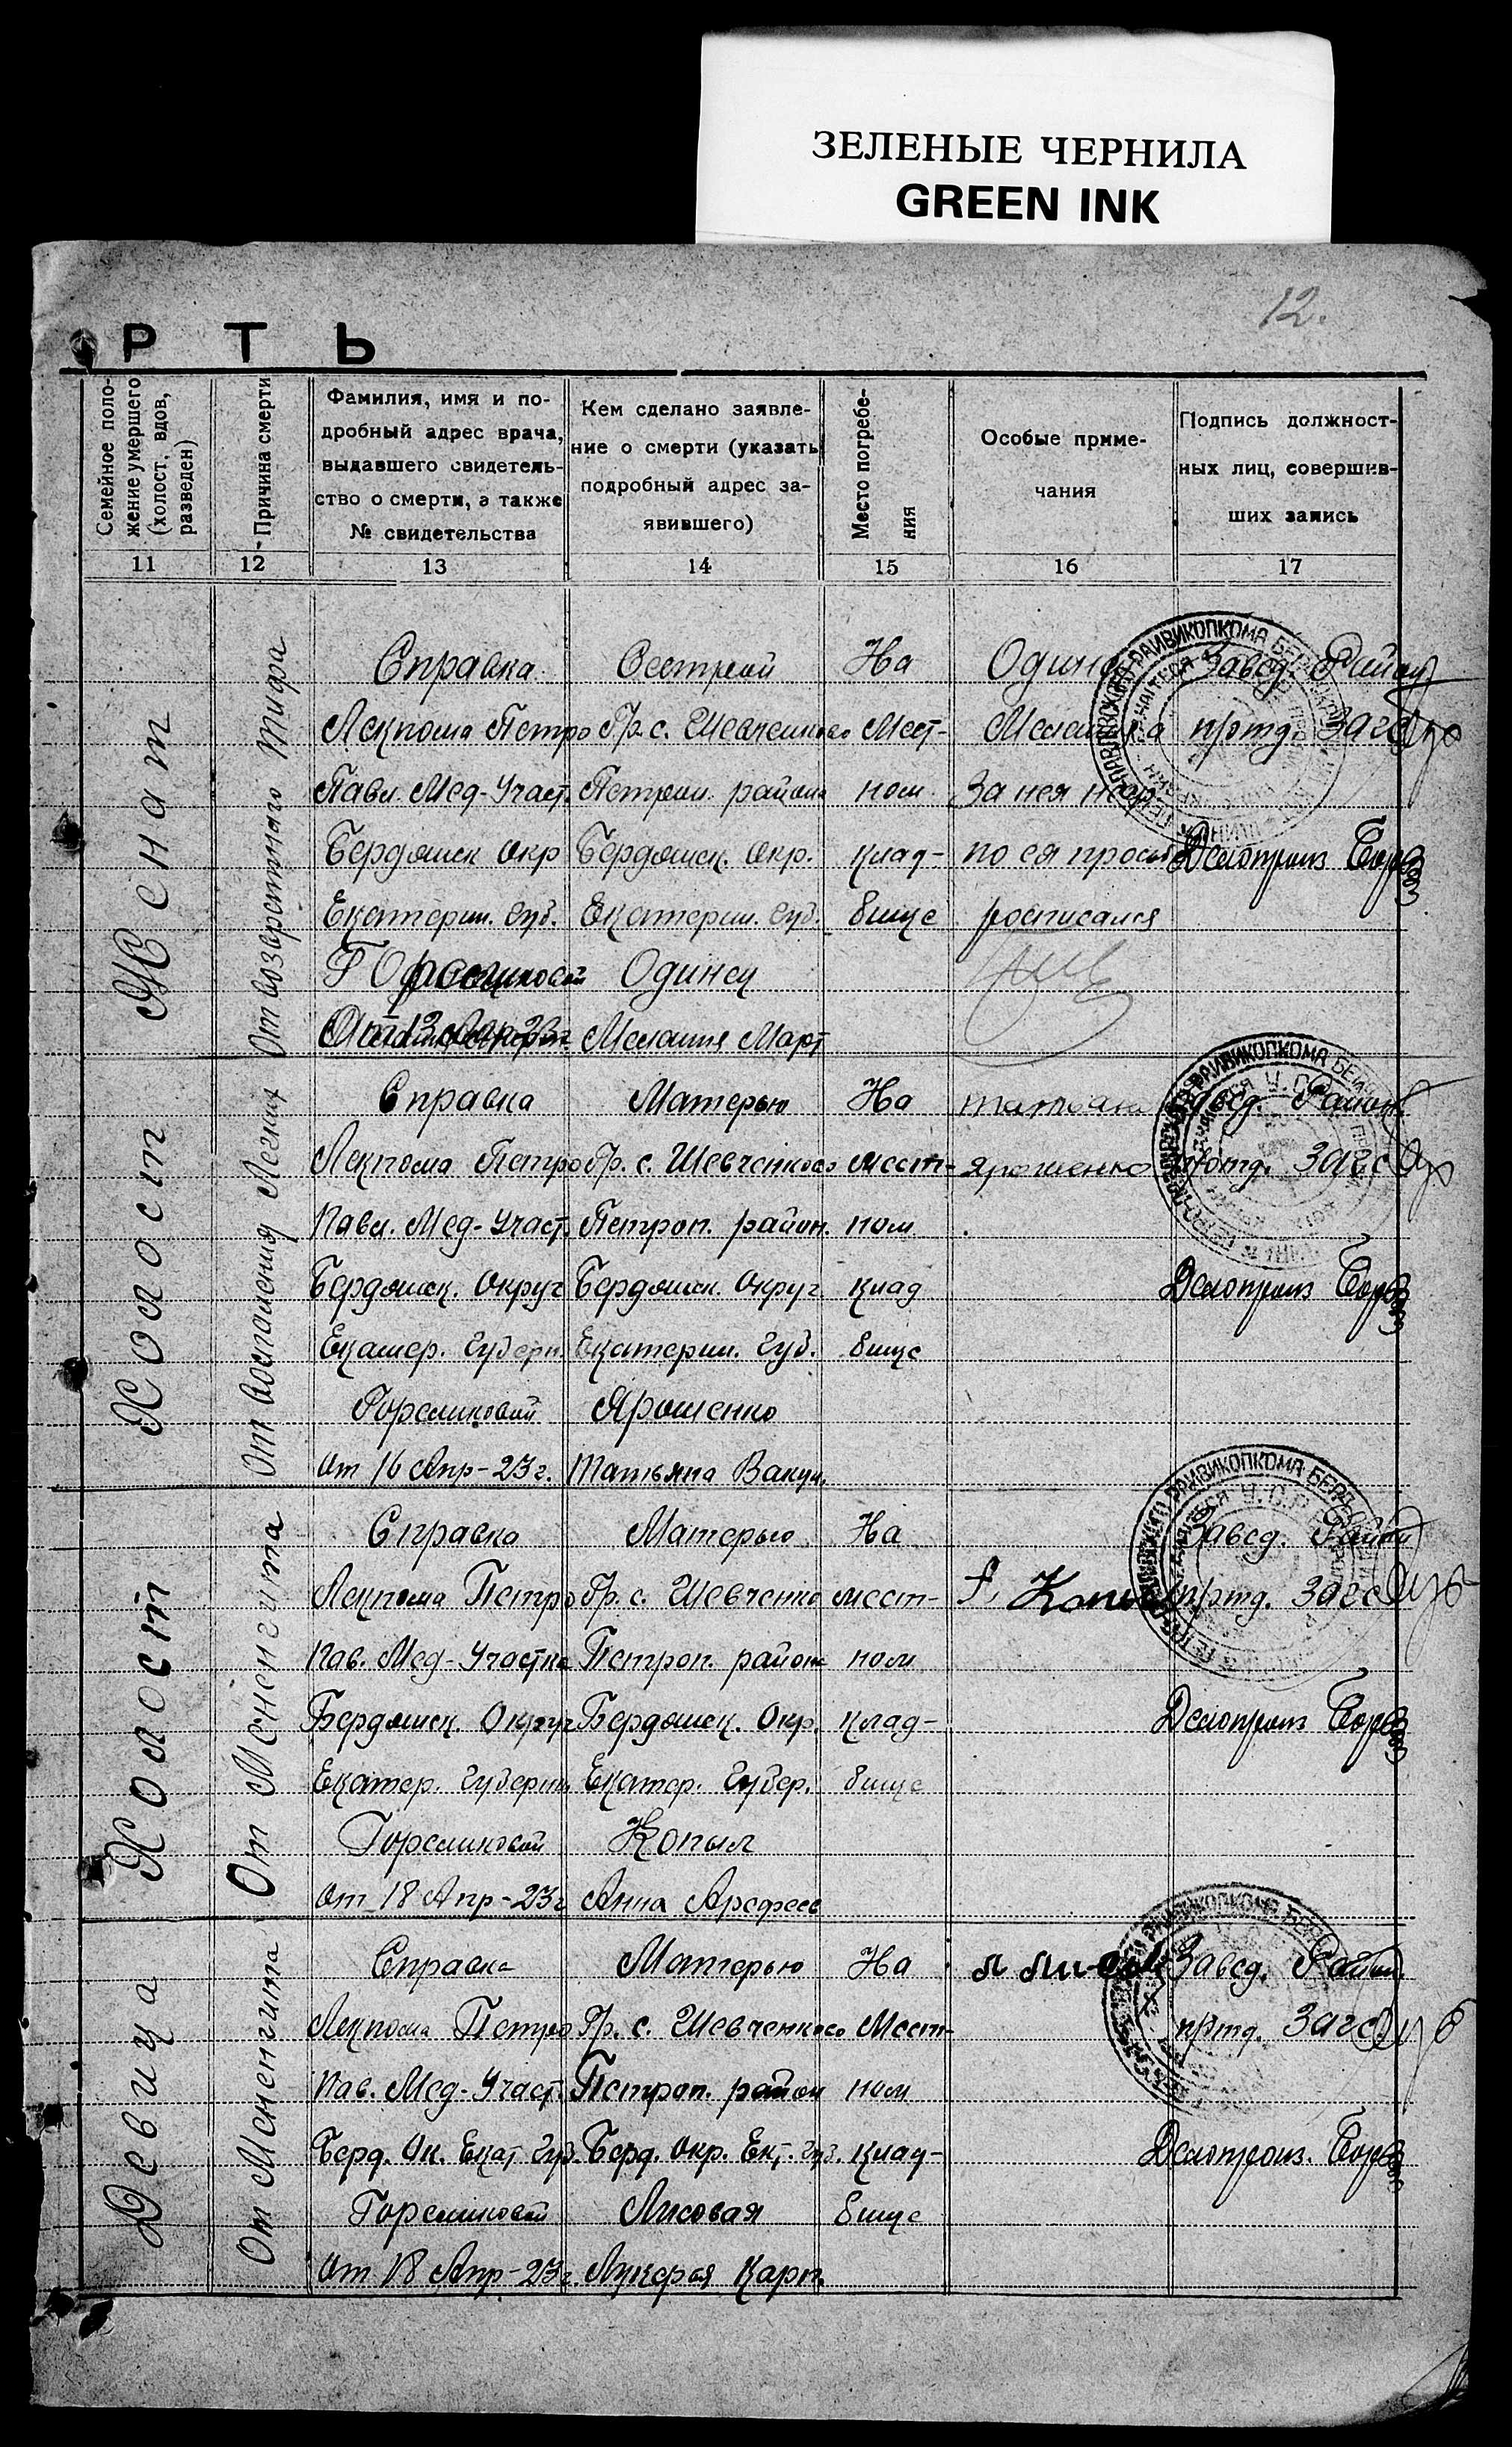 ЗЕЛЕНЫЕ ЧЕРНИЛА
GREEN INK
12.
РТЬ
Семейное поло-
жение умершего
(холост, вдов,
разведен)
Причина смерти
Фамилия, имя и по-
дробный адрес врача,
выдавшего свидетель-
ство о смерти, а также
№ свидетельства
Кем сделано заявле-
ние о смерти (указать
подробный адрес за-
явившего)
Место погребе-
ния
Особые приме-
чания
Подпись должност-
ных лиц, совершив-
ших запись
11 12 13 14 15 16 17
Женат
От возвратного Тифа
Справка
Лекпома Петро
Павл. Мед-Участ.
Бердянск Окр
Екатерин. Губ.
Сестрой
Гр. с. Шевченково
Петроп. района
Бердянск. Окр.
Екатерин. Губ.
Одинец
Мелания Март
На
Мест-
ном
клад-
бище
Одинец
за нея
по ея прось
росписался
Завед. Район
п/отд. Загс
Делопроиз
Холост
От воспаления Легких
Справка
Лекпома Петро
Павл. Мед-Участ.
Бердянск. Округ
Екатер. Губерн.
Гореликовой
От 16 Апр-23 г.
Матерью
Гр. с. Шевченково
Петроп. район.
Бердянск. Округ
Екатерин. Губ.
Ярошенко
Татьяна Вакул.
На
мест-
ном
клад
бище
Ярошенко
Завед. Район
п/отд. Загс
Делопроиз
Холост
От Менингита
Справка
Лекпома Петро
Пав. Мед-Участка
Бердянск. Округ
Екатер. Губерни.
Гореликовой
От 18 Апр-23 г
Матерью
Гр. с. Шевченко
Петроп. района
Бердянск. Окр.
Екатер. Губер.
Копыл
Анна Арефьев
На
мест-
ном
клад-
бище
Завед. Район
п/отд. Загс
Делопроиз
Девица
От Менингита
Справка
Лекпома Петро
Пав. Мед-Участ.
Берд. Ок. Екат. Губ.
Гореликовой
От 18 Апр-23 г.
Матерью
Гр. с. Шевченково
Петроп. район
Берд. Окр. Ек. Губ.
Лисовая
Лукерья Карп.
На
Мест-
ном
клад-
бище
Завед. Район
п/отд. Загс
Делопроиз.